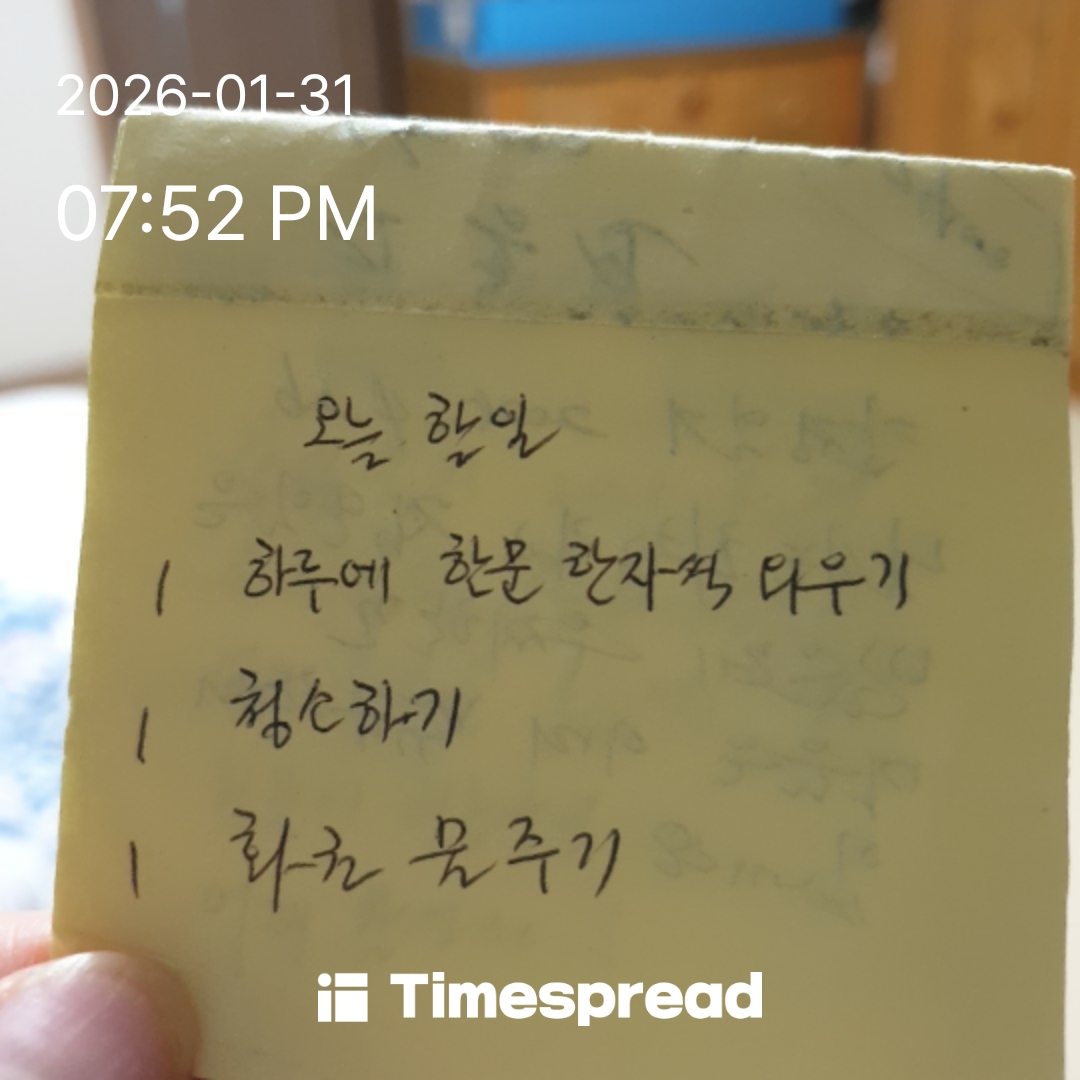 2026-01-31
07:52 PM
오늘 할일
1 하루에 한문 한자씩 외우기
1 청소하기
1 화초 물주기
Timespread